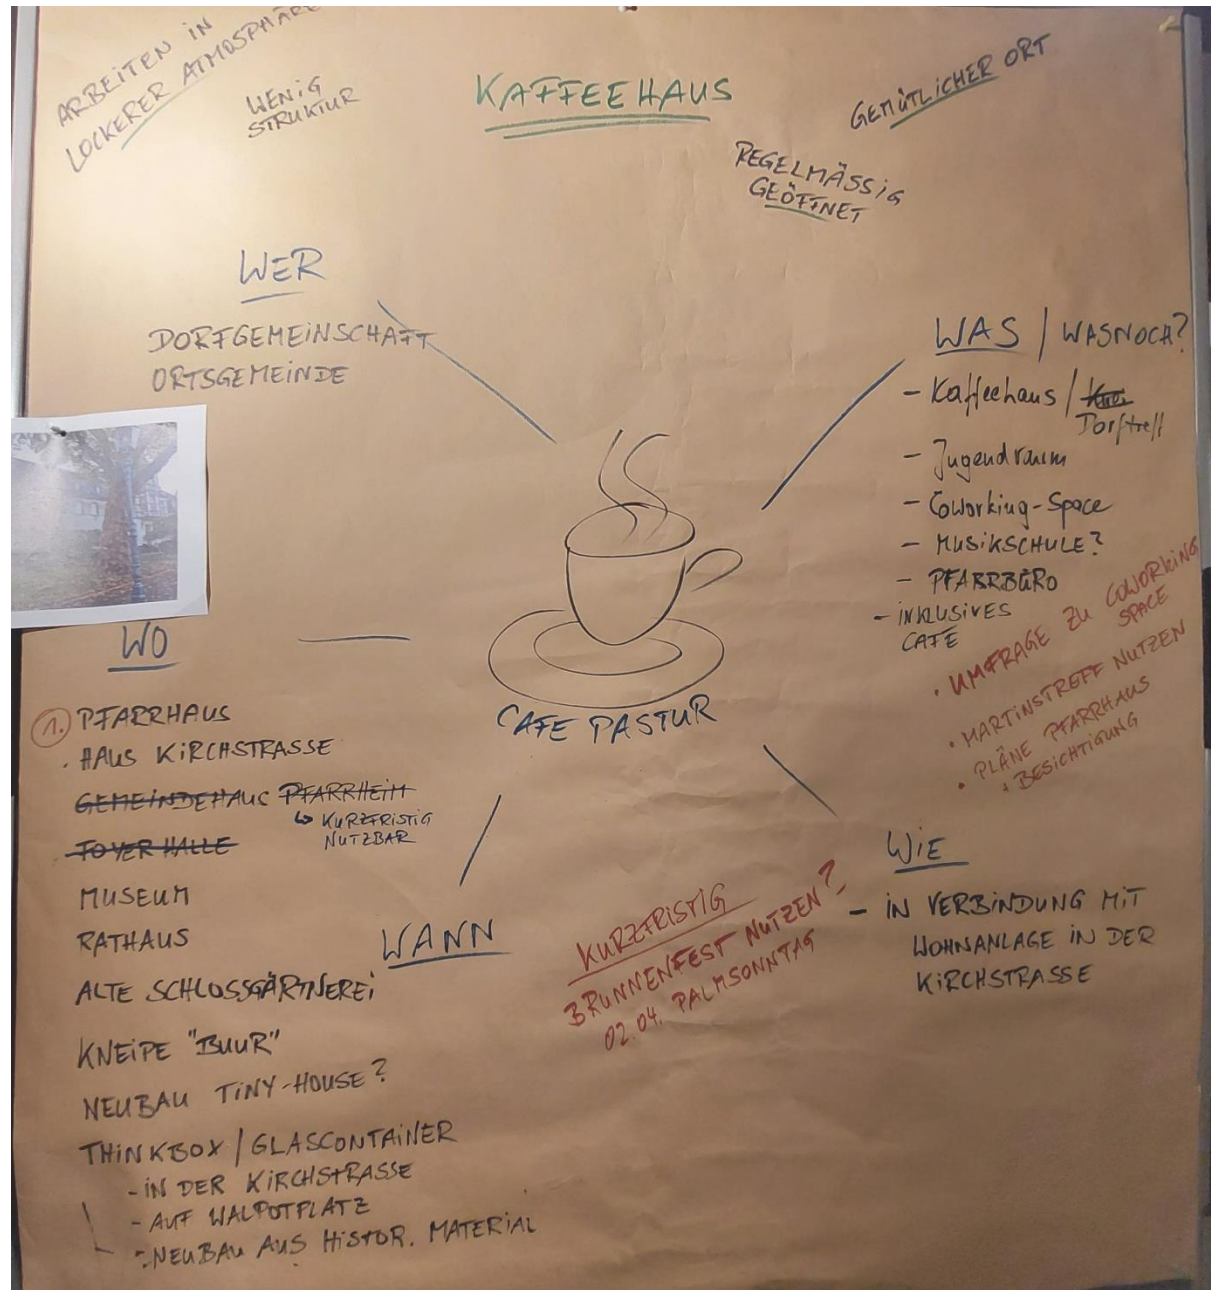 ARBEITEN IN
LOCKERER ATMOSPHÄRE
WENIG
STRUKTUR
KAFFEEHAUS
GEMÜTLICHER ORT
REGELMÄSSIG
GEÖFFNET
WER
DORFGEMEINSCHAFT
ORTSGEMEINDE
WAS / WASNOCH?
- Kaffeehaus /
Dorftreff
- Jugendraum
- CoWorking-Space
- MUSIKSCHULE?
- PFARRBÜRO
- INKLUSIVES
CAFE
• UMFRAGE ZU COWORKING
SPACE
• MARTINSTREFF NUTZEN
• PLÄNE PFARRHAUS
+ BESICHTIGUNG
CAFE PASTUR
WO
1. PFARRHAUS
. HAUS KIRCHSTRASSE
GEMEINDEHAUS PFARRHEIM
↳ KURZFRISTIG
NUTZBAR
FOYER HALLE
MUSEUM
RATHAUS
ALTE SCHLOSSGÄRTNEREI
KNEIPE "BUUR"
NEUBAU TINY-HOUSE?
THINKBOX / GLASCONTAINER
- IN DER KIRCHSTRASSE
- AUF WALPOTPLATZ
- NEUBAU AUS HISTOR. MATERIAL
WANN
KURZFRISTIG
BRUNNENFEST NUTZEN?
02.04. PALMSONNTAG
WIE
- IN VERBINDUNG MIT
WOHNANLAGE IN DER
KIRCHSTRASSE